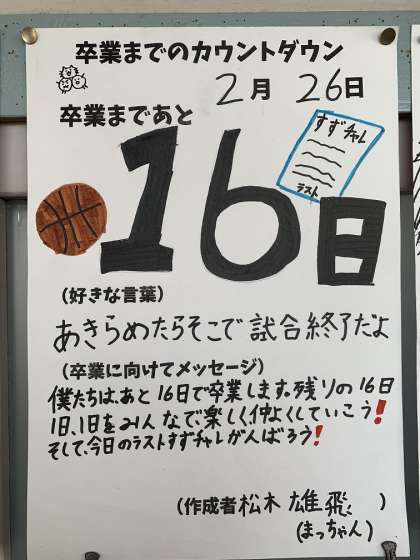 卒業までのカウントダウン
2月 26日
卒業まであと
16日
すずチャレ
ラスト
(好きな言葉)
あきらめたらそこで試合終了だよ
(卒業に向けてメッセージ)
僕たちは、あと16日で卒業します。残りの16日
1日、1日をみんなで、楽しく、仲よくしていこう!
そして、今日のラストすずチャレがんばろう!
(作成者 松木 雄飛 )
(まっちゃん)